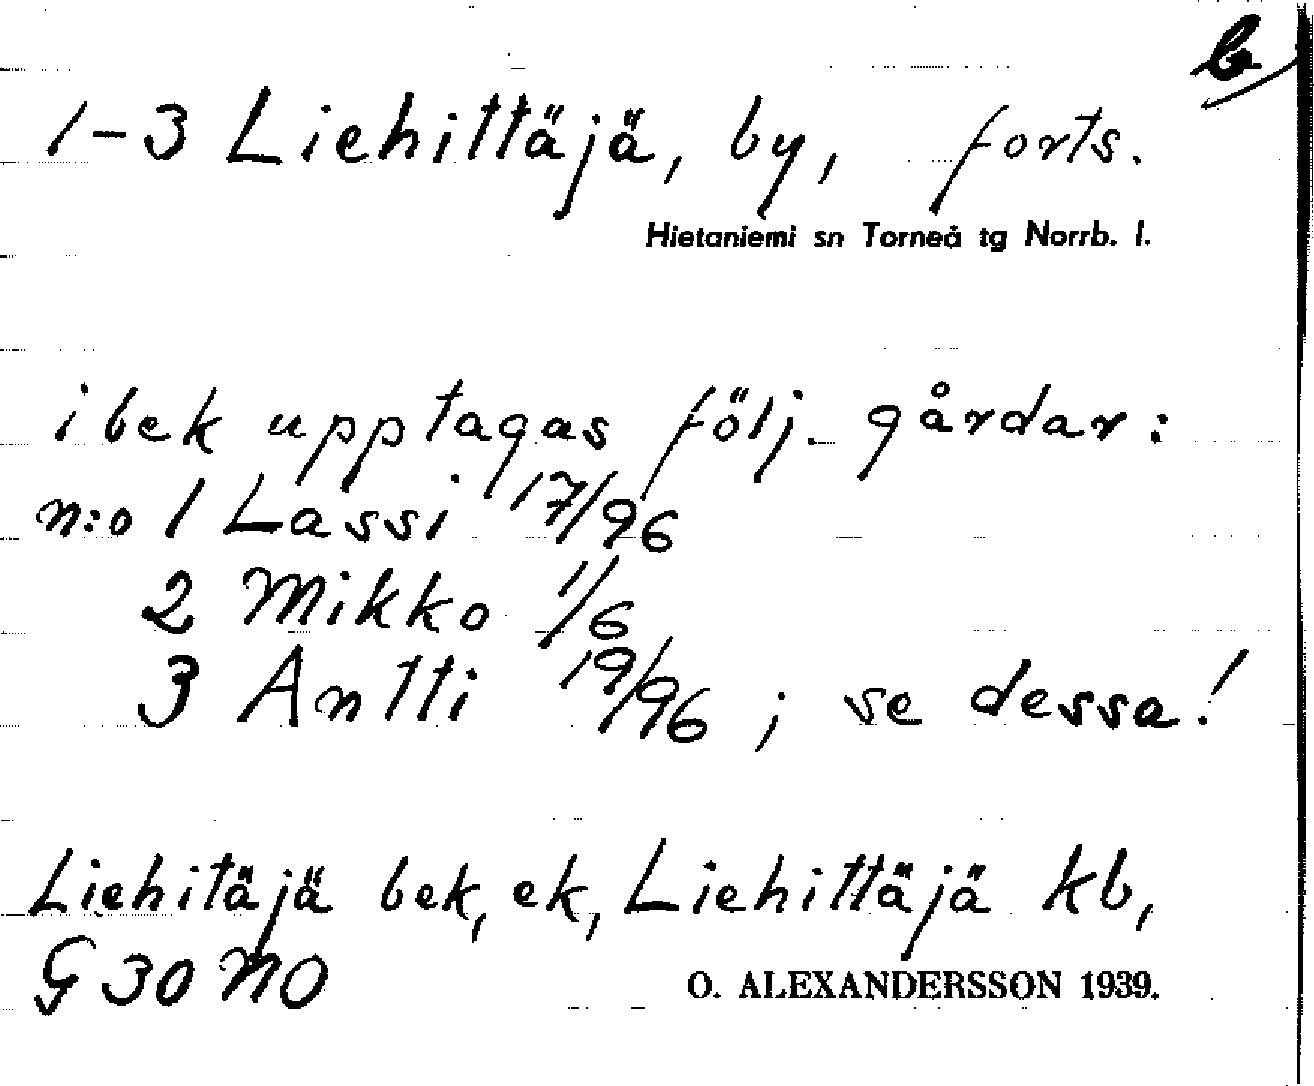 b
1-3 Liehittäjä, by, forts.
Hietaniemi sn Torneå tg Norrb. l.
i bek upptagas följ. gårdar:
n:o 1 Lassi 17/96
2 Mikko 1/6
3 Antti 19/96 ; se dessa!
Liehitäjä bek, ek, Liehittäjä kb,
G 30 NO
O. ALEXANDERSSON 1939.